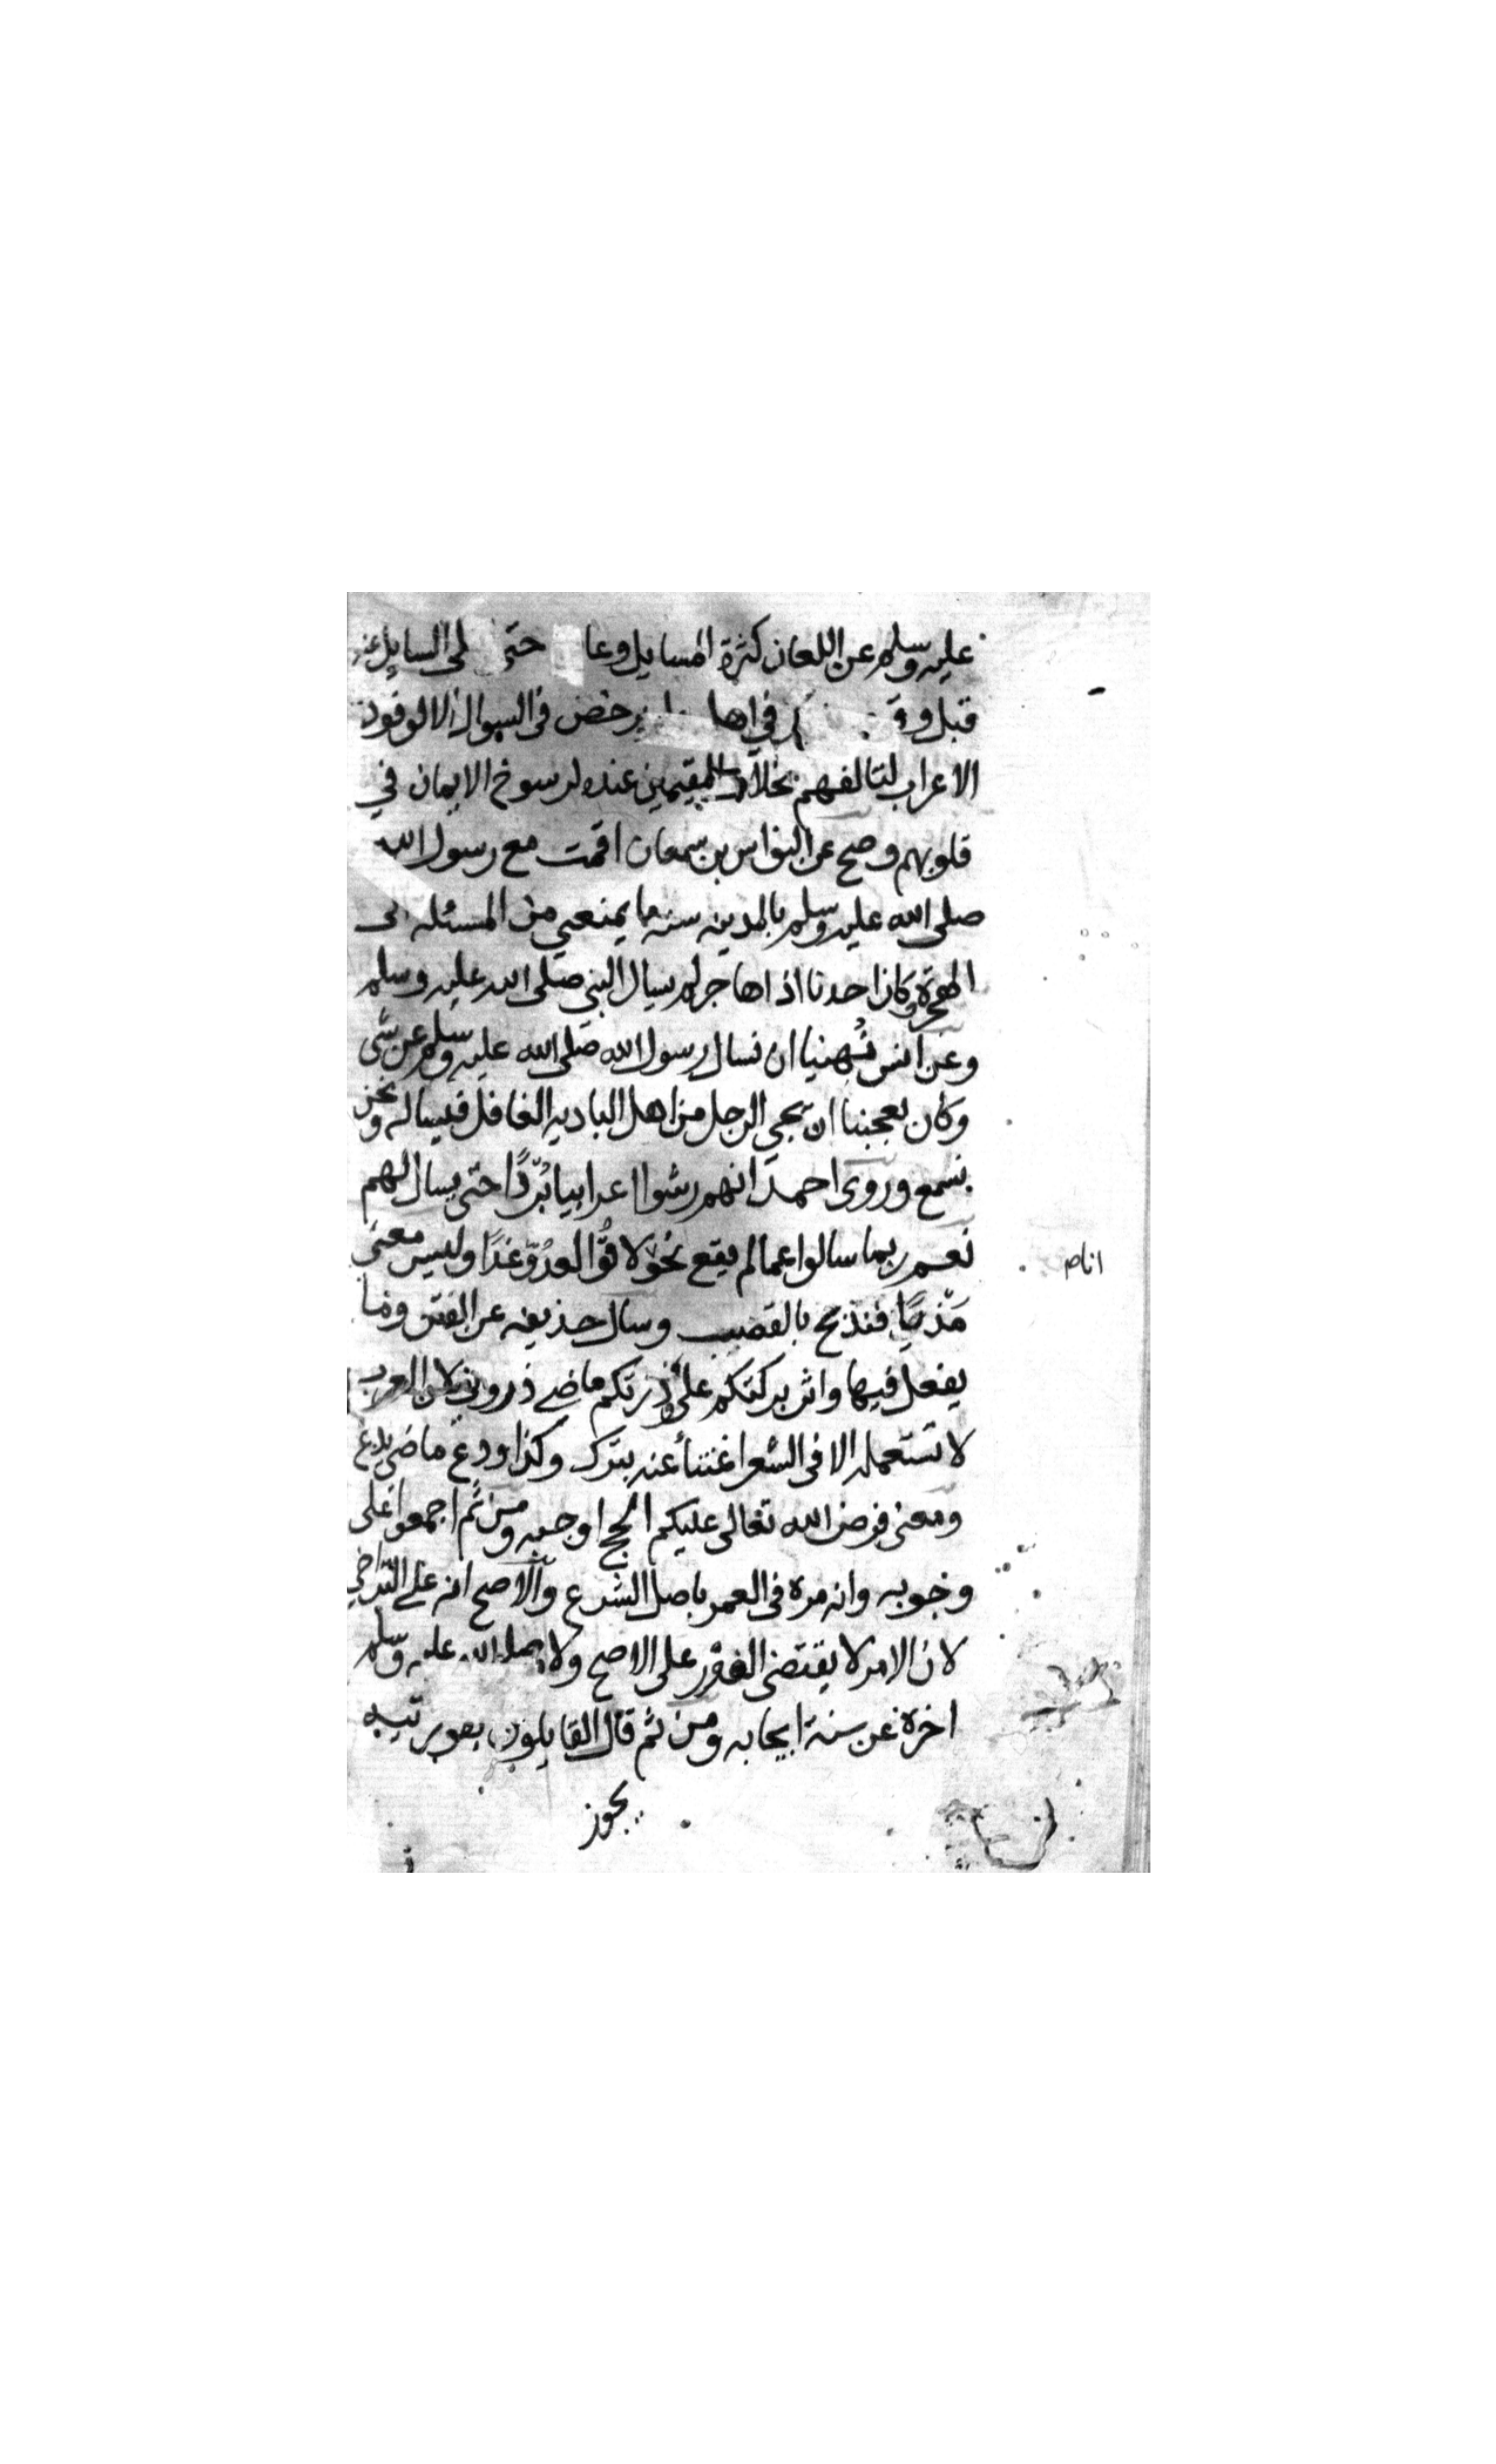 عليه وسلم عن اللعان كثرة المسايل وعا حتى لى السايل عنه
قبل وق في اها يرخص في السوال الا لوفود
الاعراب لتالفهم بخلاف المقيمين عنده لرسوخ الايمان في
قلوبهم وصح عن النواس بن سمعان اقمت مع رسول الله
صلى الله عليه وسلم بالمدينه سنه ما يمنعني من المسئله الى
الهجرة وكان احدنا اذا هاجر لم يسال النبي صلى الله عليه وسلم
وعن انس نُهينا ان نسال رسول الله صلى الله عليه وسلم عن شى
وكان يعجبنا ان يجي الرجل من اهل الباديه الغافل فيساله ونحن
نسمع وروى احمد انهم رشوا اعرابيا بُردًا حتى يسال لهم
نعم ربما سالوا عما لم يقع نحو لاقوُا العدُوّ غدًا وليس معنى
مَدْىً فنذبح بالقصب وسال حذيفه عن الفتن وما
انا صـ
يفعل فيها واثر بركتكم على وذرتكم ماضي ذروني لان العرب
لا تستعمله الا في الشعر اغتنأ عنه بترك وكذا ودع ماضي يدع
ومعنى فرض الله تعالى عليكم الحج اوجبه ومن ثم اجمعوا على
وجوبه وانه مره في العمر باصل الشرع والاصح انه على التراخي
لان الامر لا يقتضى الفور على الاصح ولانه صلى الله عليه وسلم
اخره عن سنة ايجابه ومن ثم قال القايلون بفوريتيه
يجوز